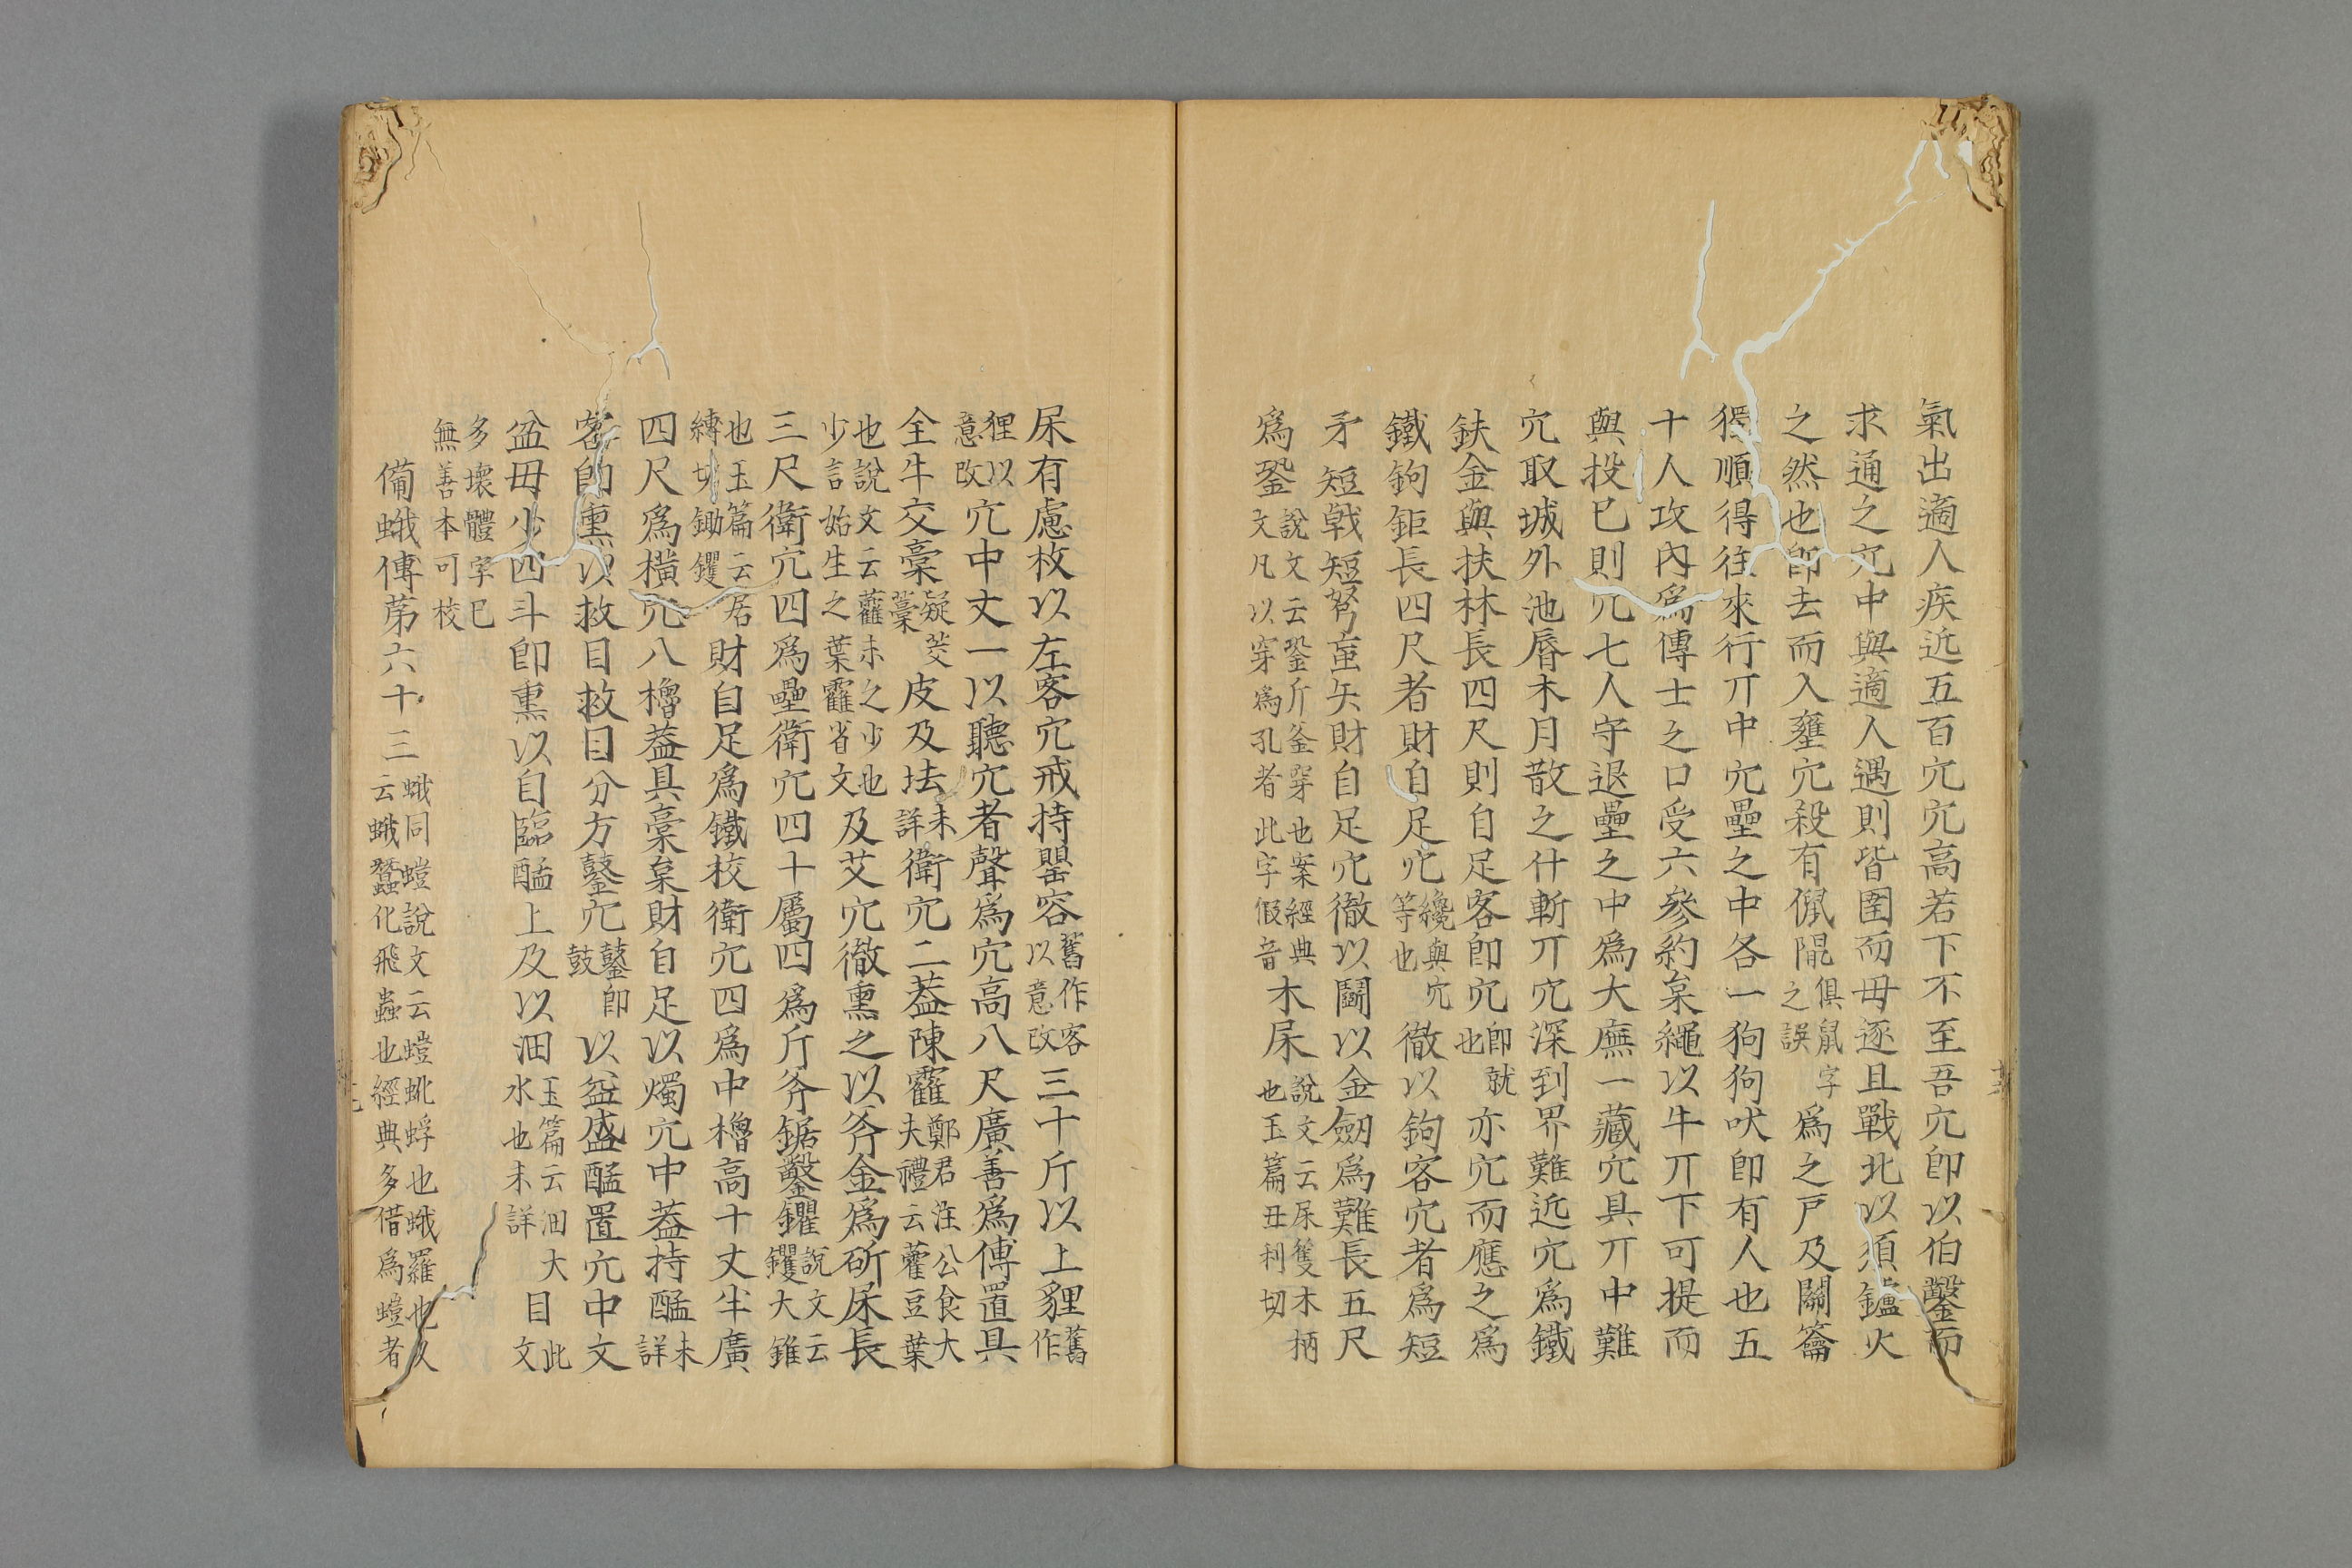 氣出適人疾近五百穴穴高若下不至吾穴卽以伯鑿而
求通之穴中與適人遇則皆圉而毋逐且戰北以須鑪火
之然也卽去而入壅穴殺有佩䦎俱鼠字之誤爲之戸及關籥
獨順得往來行丌中穴壘之中各一狗狗吠卽有人也五
十人攻內爲傳士之口受六參約枲繩以牛丌下可提而
與投已則穴七人守退壘之中爲大廡一藏穴具丌中難
穴取城外池脣木月散之什斬丌穴深到界難近穴爲鐵
鈇金與扶林長四尺則自足客卽穴卽就也亦穴而應之爲
鐵鉤鉅長四尺者財自足穴纔與穴等也徹以鉤客穴者爲短
矛短戟短弩䖟矢財自足穴徹以鬭以金劒爲難長五尺
爲銎說文云銎斤釜穿也案經典文凡以穿爲孔者此字假音木㞓說文云㞓䉶木柄也玉篇丑利切
㞓有慮枚以左客穴戒持罌容舊作客以意改三十斤以上貍舊作
狸以意改穴中丈一以聽穴者聲爲穴高八尺廣善爲傅置具
全牛交稾疑茭稾皮及坺未詳衛穴二葢陳靃鄭君注公食大夫禮云藿豆葉
也說文云虇未之少也少言始生之葉靃省文及艾穴徹熏之以斧金爲斫㞓長
三尺衛穴四爲壘衛穴四十屬四爲斤斧鋸鑿钁說文云钁大錐
也玉篇云居縛切鋤钁財自足爲鐵校衛穴四爲中櫓高十丈半廣
四尺爲橫穴八櫓葢具稾枲財自足以燭穴中葢持醖未詳
客卽熏以救目救目分方鼛穴鼛卽鼓以益盛醖置穴中文
盆毋少四斗卽熏以自臨醖上及以沺玉篇云沺大水也未詳目此文
多壞體字已無善本可校
備蛾傅第六十三蛾同螘說文云螘蚍蜉也蛾羅也又云蛾蠶化飛蟲也經典多借爲螘者